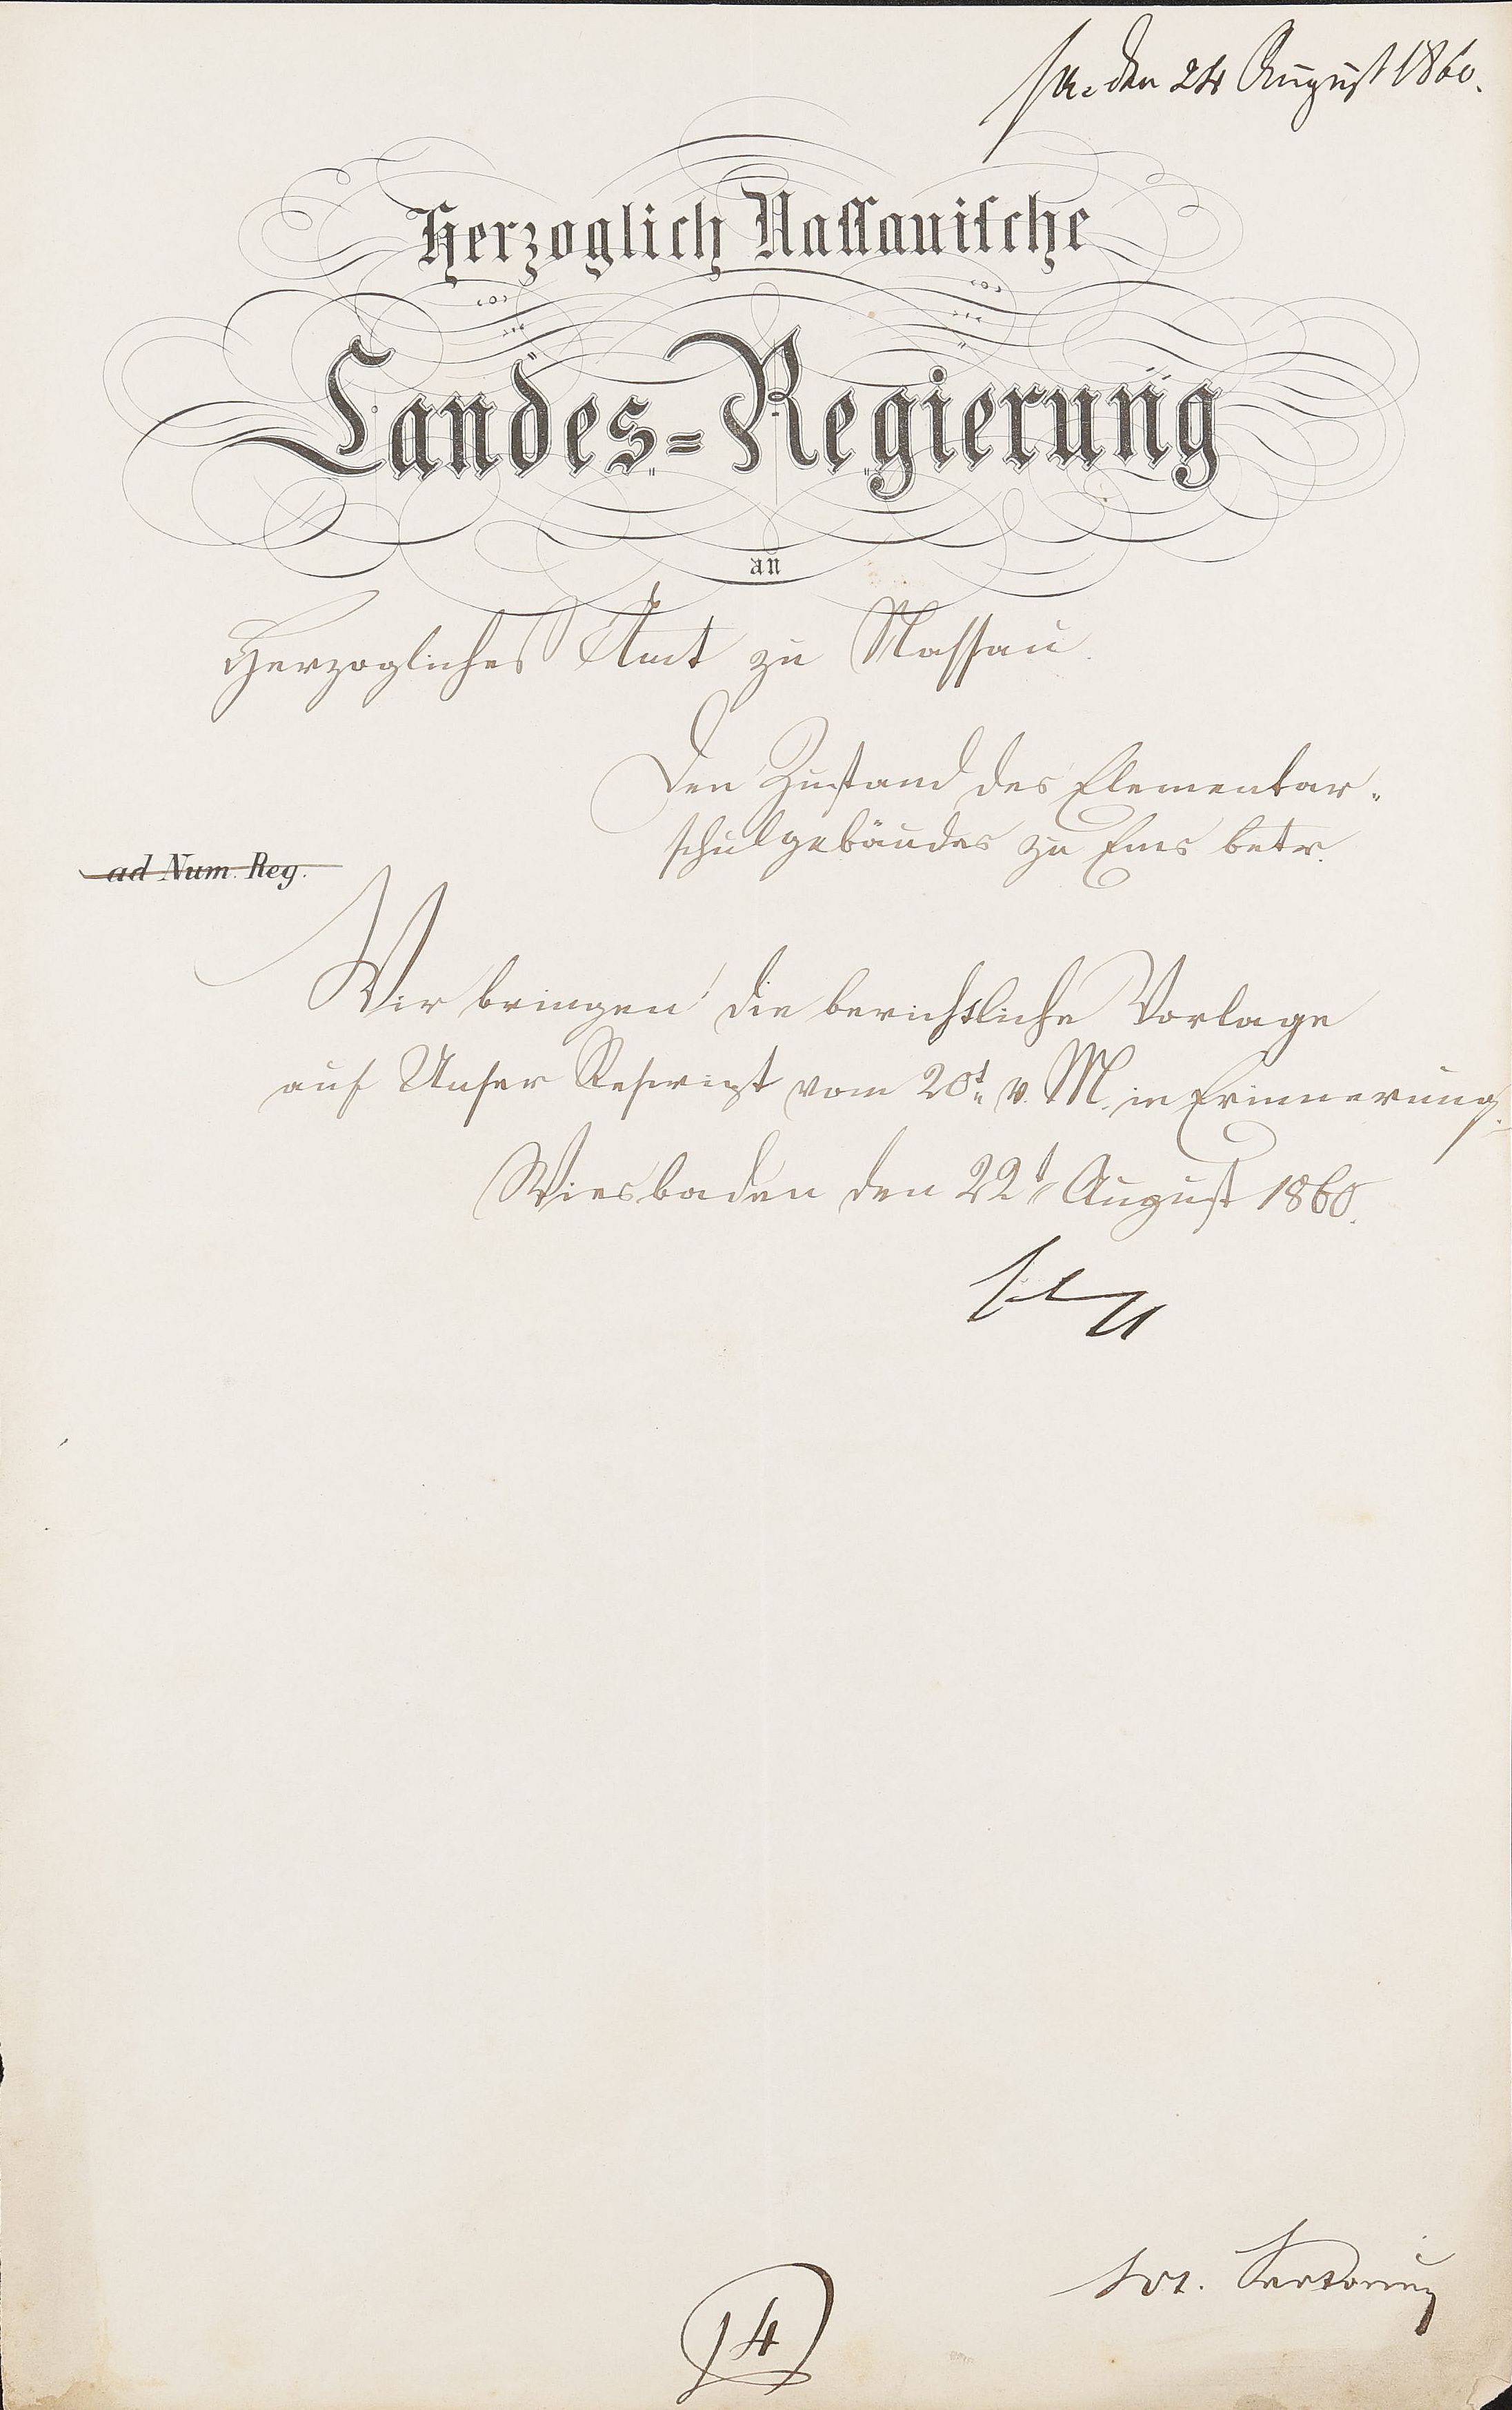 den 24 August 1860.
Herzoglich Nassauische
Landes-Regierung
an
Herzogliches Amt zu Nassau.
Den Zustand des Elementar-
schulgebäudes zu Ems betr.
ad Num. Reg.
Wir bringen die berichtliche Vorlage
auf Unser Rescript vom 20t. v. M. in Erinnerung.
Wiesbaden den 22t August 1860.
14